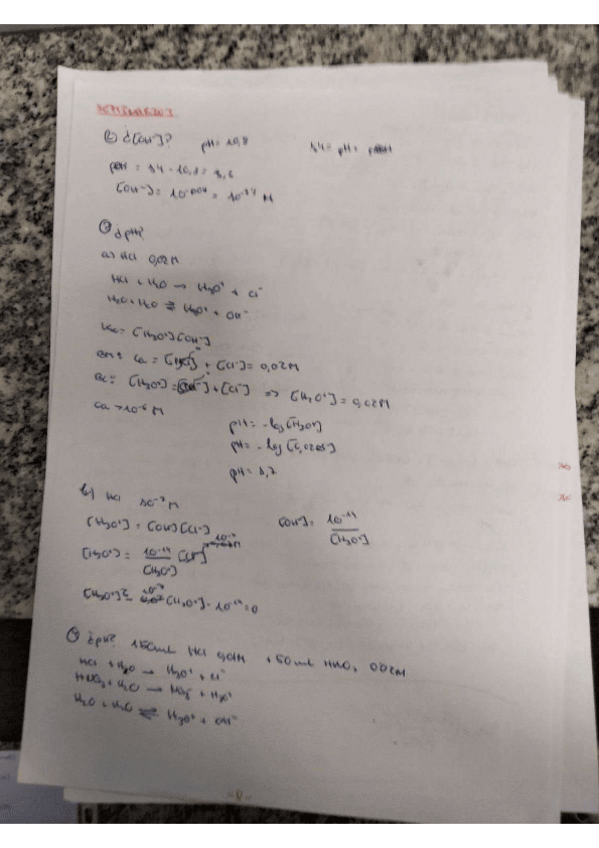 SEMINARIO 3
② ¿[OH⁻]? pH = 10,8 14 = pH + pOH
pOH = 14 - 10,8 = 3,2
[OH⁻] = 10^-pOH = M
③ ¿pH?
a) HCl 0,02M
HCl + H₂O → H₃O⁺ + Cl⁻
H₂O + H₂O ⇌ H₃O⁺ + OH⁻
Kw = [H₃O⁺][OH⁻]
BM: Ca = [HCl] + [Cl⁻] = 0,02M
BC: [H₃O⁺] = [OH⁻] + [Cl⁻] => [H₃O⁺] = 0,02M
Ca > 10⁻⁶ M
pH = -log [H₃O⁺]
pH = -log [0,02]
pH = 1,7
b) HCl 10⁻⁷ M
[H₃O⁺] = [OH⁻] [Cl⁻] [OH⁻] = 10⁻¹⁴ / [H₃O⁺]
[H₃O⁺] = 10⁻¹⁴ / [H₃O⁺] [Cl⁻] 10⁻⁷
[H₃O⁺]² - 10⁻⁷ [H₃O⁺] - 10⁻¹⁴ = 0
¿pH? 150mL HCl 0,01M + 50mL HNO₃ 0,02M
HCl + H₂O → H₃O⁺ + Cl⁻
HNO₃ + H₂O → NO₃⁻ + H₃O⁺
H₂O + H₂O ⇌ H₃O⁺ + OH⁻